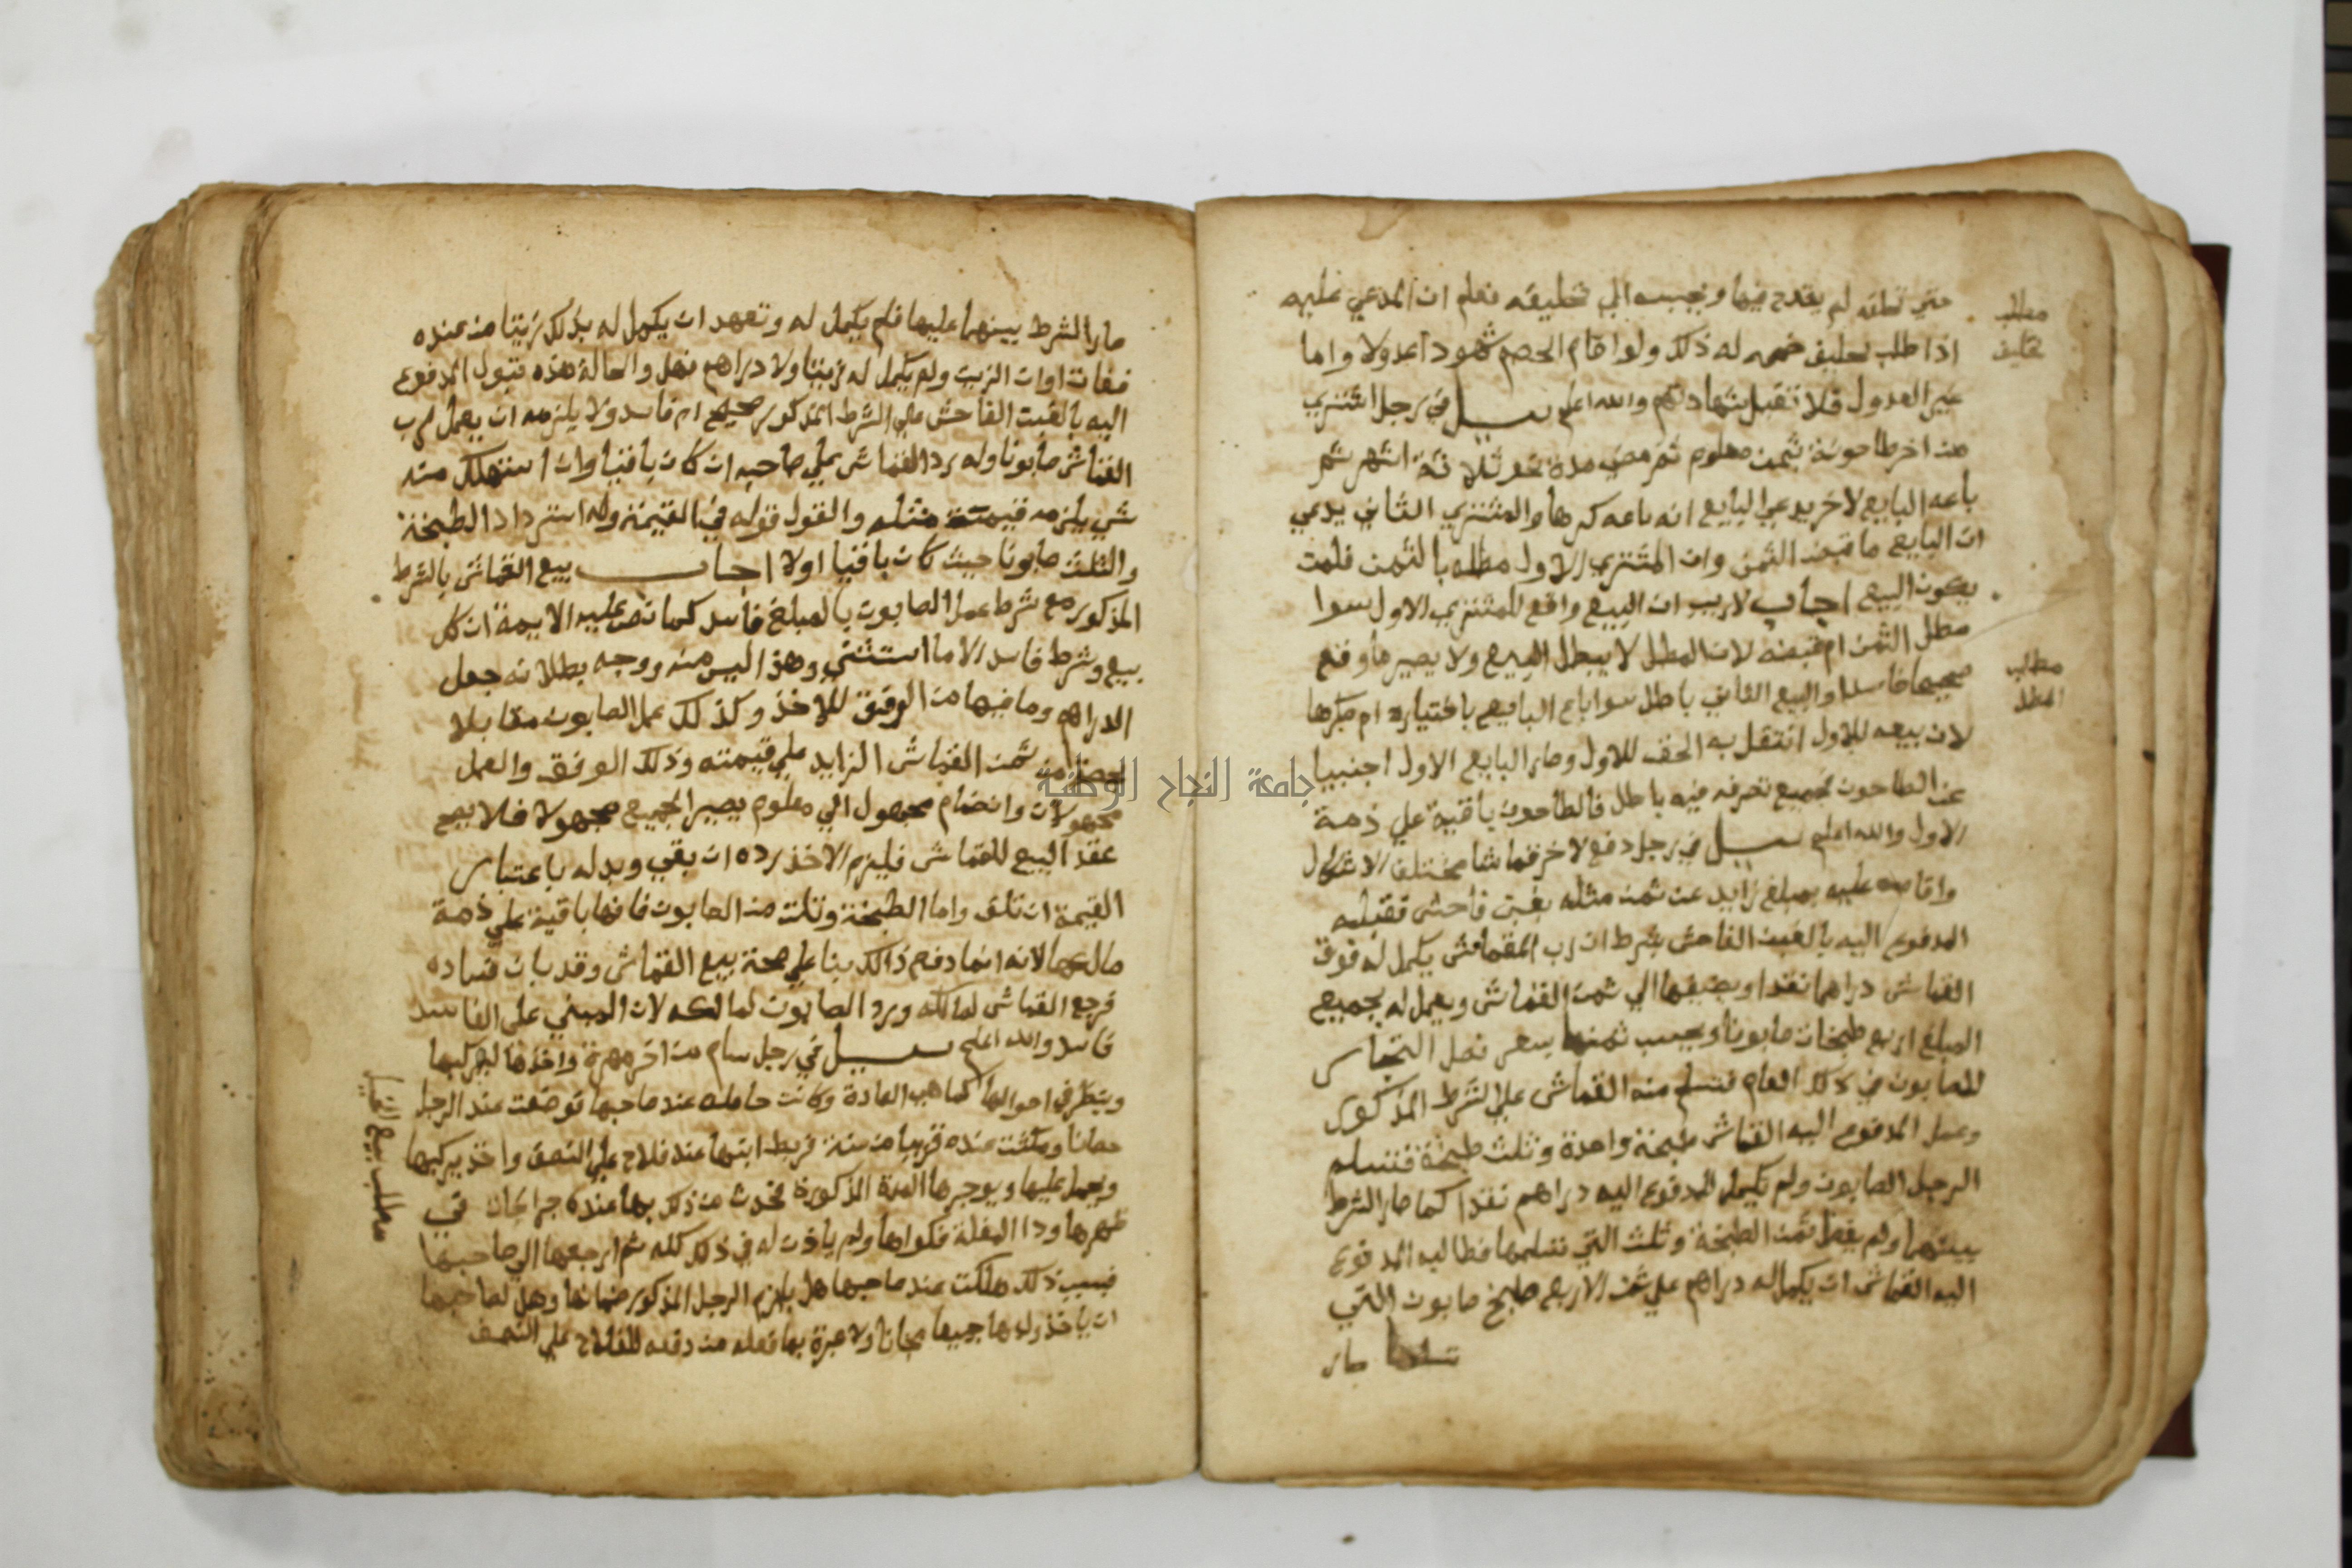 حتى تحلفه لم يقدح فيها ويجيبه الي تحليفه نعلم ان المدعي عليه
اذا طلب تحليف خصمه له ذلك ولو اقام الخصم شهودا عدولا واما
غير العدول فلا تقبل شهادتهم والله اعلم سيل في رجل اشتري
من اخر طاحونة بثمن معلوم ثم مضي مدة نحو ثلاثة اشهر ثم
باعه البايع لاخر يدعي البايع انه باعه كرها والمشتري الثاني يدعي
ان البايع ما قبض الثمن وان المشتري الاول مطله بالثمن فلمن
يكون البيع اجاب لا ريب ان البيع واقع للمشتري الاول سوا
مطل الثمن ام قبضه لان المطل لا يبطل البيع ولا يصير ما وقع
صحيحا فاسدا والبيع الثاني باطل سوا باع البايع باختياره ام مكرها
لان بيعه للاول انتقل به الحق للاول وصار البايع الاول اجنبيا
عن الطاحون فجميع تصرفه فيه باطل فالطاحون باقية علي ذمة
الاول والله اعلم سيل في رجل دفع لاخر قماشا مختلف الاشكال
عليه بمبلغ زايد عن ثمن مثله بغبن فاحش فقبله
المدفوع اليه بالغبن الفاحش بشرط ان رب القماش يكمل له فوق
القماش دراهما نقدا ويضيفها الي ثمن القماش ويعمل له بجميع
المبلغ اربع طبخات صابونا ويحسب ثمنها بسعر فصل التجار
للصابون في ذلك العام فتسلم منه القماش علي الشرط المذكور
وعمل المدفوع اليه القماش طبخة واحدة وثلث طبخة فتسلم
الرجل الصابون ولم يكمل المدفوع اليه دراهم نقدا كما صار الشرط
بينهما ولم يقبض ثمن الطبخة وثلث التي تسلمها فطالبه المدفوع
اليه القماش ان يكمل له دراهم علي ثمن الاربع طبخ صابون التي
تسلمها صار
مطلب
تحليف
مطلب
المطل
صار الشرط بينهما عليها فلم يكمل له وتعهد ان يكمل له بذلك زيتا من عنده
ففات اوان الزيت ولم يكمل له زيتا ولا دراهم فهل والحالة هذه قبول المدفوع
اليه بالغبن الفاحش علي الشرط المذكور صحيح ام فاسد ولا يلزمه ان يعمل لرب
القماش صابونا وله رد القماش علي صاحبه ان كان باقيا وان استهلك منه
شي يلزمه قيمة مثله والقول قوله في القيمة وله استرداد الطبخة
والثلث صابونا حيث كان باقيا اولا اجاب بيع القماش بالشرط
المذكور مع شرط عمل الصابون بالمبلغ فاسد كما نص عليه الايمة ان كل
بيع وشرط فاسد الا ما استثني وهذا ليس منه ووجه بطلانه جعل
الدراهم وما فيها من الرفق للاخذ وكذلك عمل الصابون مقابلا
ثمن القماش الزايد علي قيمته وذلك الرفق والعمل
مجهولان وانضمام مجهول الي معلوم يصير الجميع مجهولا فلا يصح
عقد البيع للقماش فيلزم الاخذ رده ان بقي وبدله باعتبار
القيمة ان تلف واما الطبخة وثلث من الصابون فانها باقية علي ذمة
مالكها لانه انما دفع ذالك بنا علي صحة بيع القماش وقد بان فساده
فرجع القماش لمالكه ورد الصابون لمالكه لان المبني علي الفاسد
فاسد والله اعلم سيل في رجل سام من اخر مهرة واخذها ليركبها
وينظر في احوالها كما هي العادة وكانت حاملة عند صاحبها فوضعت عند الرجل
حصانا ومكثت عنده قريبا من سنة فربط ابنها عند فلاح علي النصف واخذ يركبها
ويحمل عليها ويوجرها المدة المذكورة فحدث من ذلك بها عنده جراحات في
ظهرها ودا المغلة فكواها ولم ياذن له في ذلك كله ثم ارجعها الي صاحبها
فبسبب ذلك هلكت عند صاحبها هل يلزم الرجل المذكور ضمانها وهل لصاحبها
ان ياخذ ولدها جميعا مجانا ولا عبرة بما فعله من دفعه للفلاح علي النصف
مطلب بيع الخيل
جامعة النجاح الوطنية